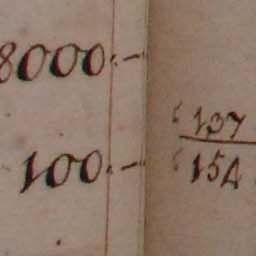 8000.-
100.-
137
154